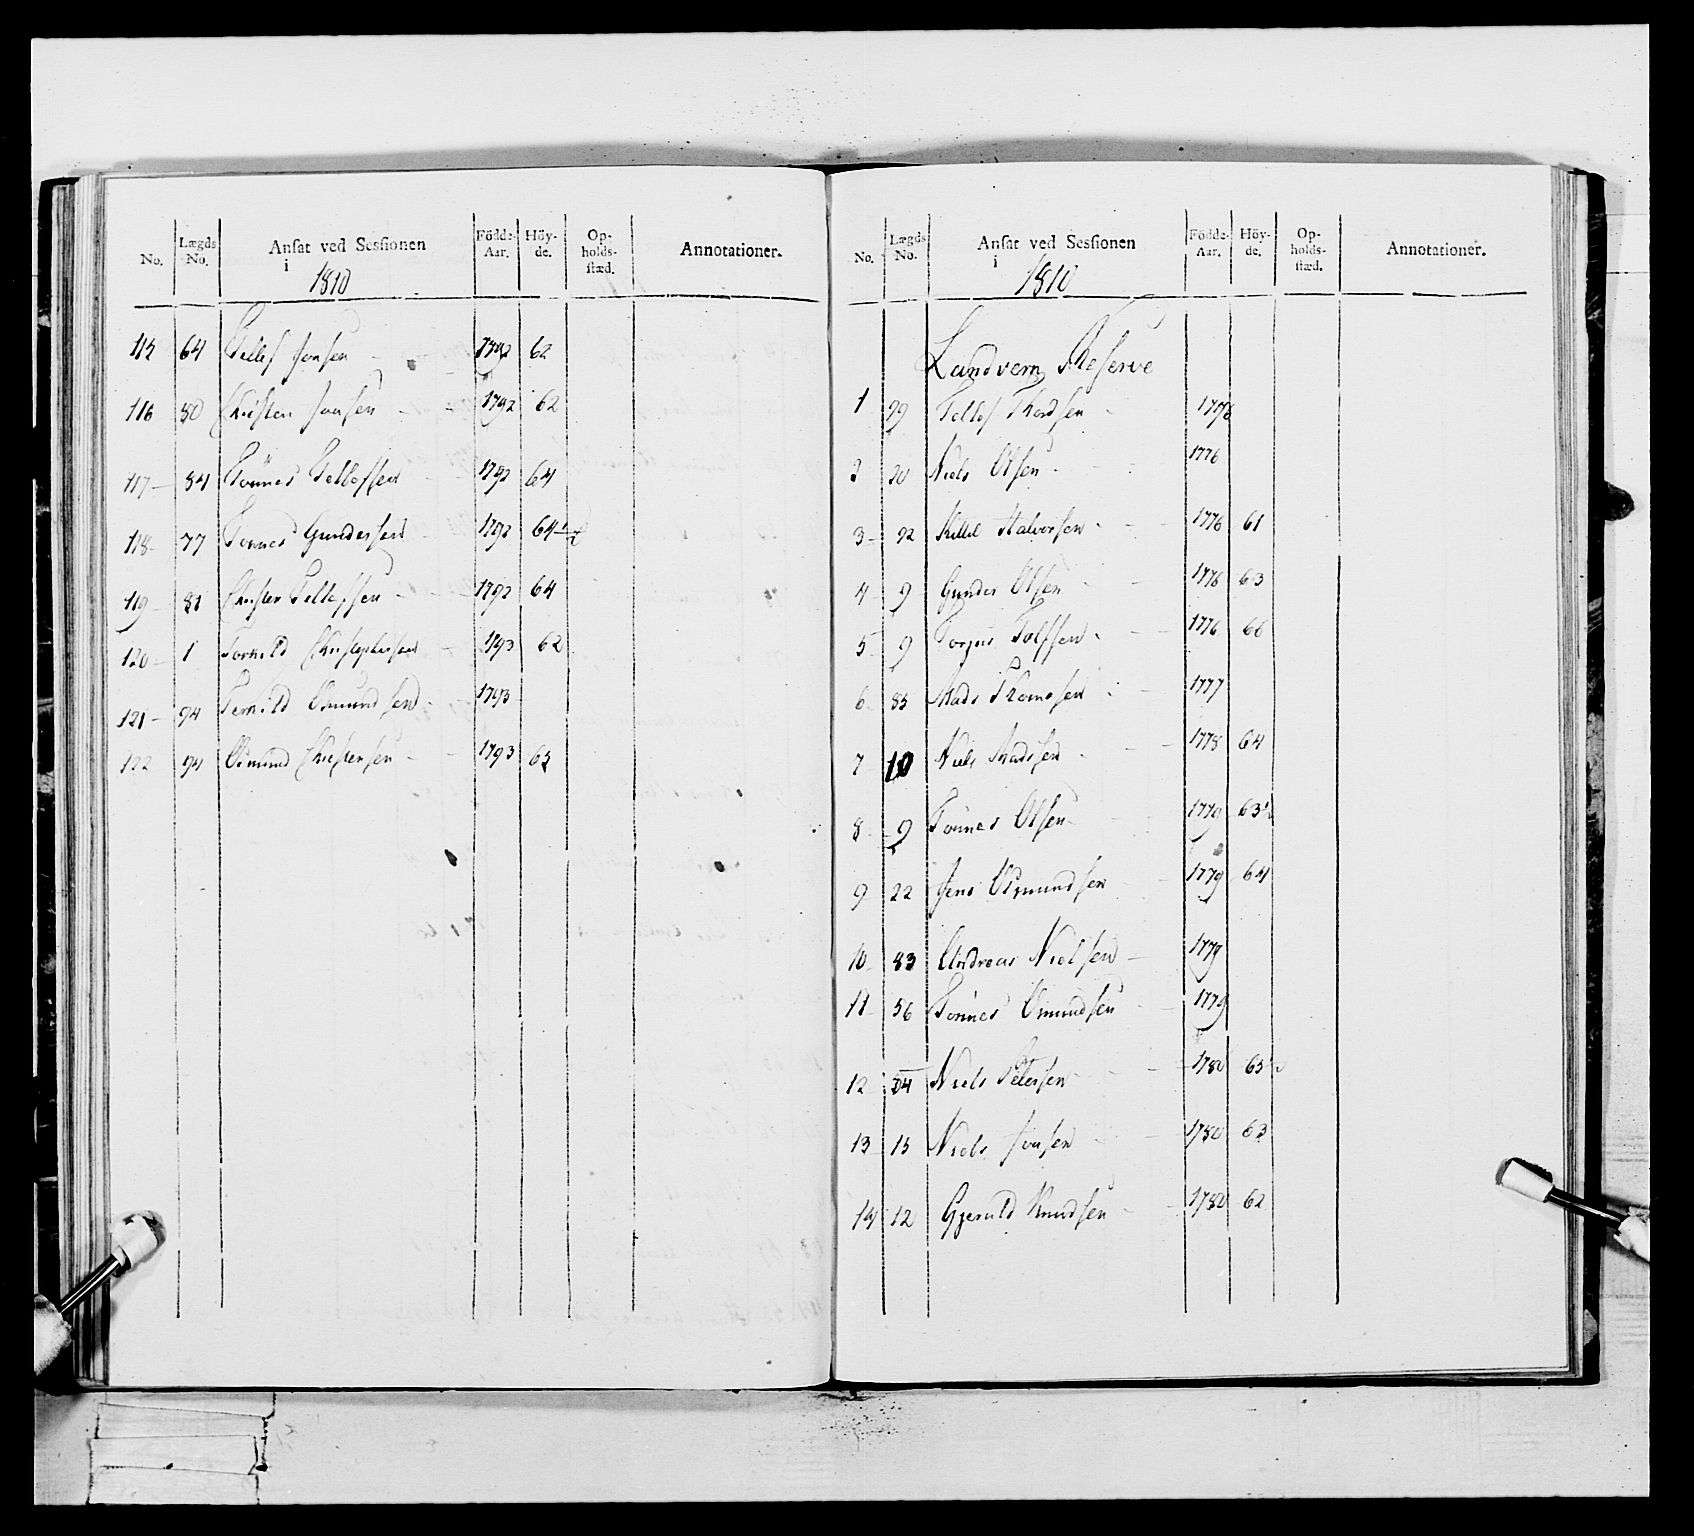 No. Lægds No. Ansat ved Sessionen i 1810 Födde-Aar. Höy-de. Op-holds-stæd. Annotationer.
115 64 Tellef Jansen 1792 62
116 80 Christen Jansen 1792 62
117 84 Tönnes Tellefsen 1792 64
118 77 Tonnes Gundersen 1792 64½
119 81 Christen Tellefsen 1792 64
120 1 Torkild Christophersen 1793 62
121 94 Terkild Osmundsen 1793
122 94 Osmund Christensen 1793 63
No. Lægds No. Ansat ved Sessionen i 1810 Födde-Aar. Höy-de. Op-holds-stæd. Annotationer.
Landværn Reserve
1 99 Tellef Thordsen 1776
2 20 Niels Olsen 1776
3 92 Kittil Halvorsen 1776 61
4 9 Gunder Olsen 1776 63
5 9 Torjus Tolfsen 1776 66
6 85 Mads Thomesen 1777
7 10 Niels Madssen 1778 64
8 9 Tönnes Olsen 1779 63½
9 22 Jens Osmundsen 1779 64
10 83 Andreas Nielsen 1779
11 56 Tönnes Osmundsen 1779
12 54 Niels Petersen 1780 65½
13 15 Niels Jonsen 1780 63
14 12 Gjeruld Knudsen 1780 62